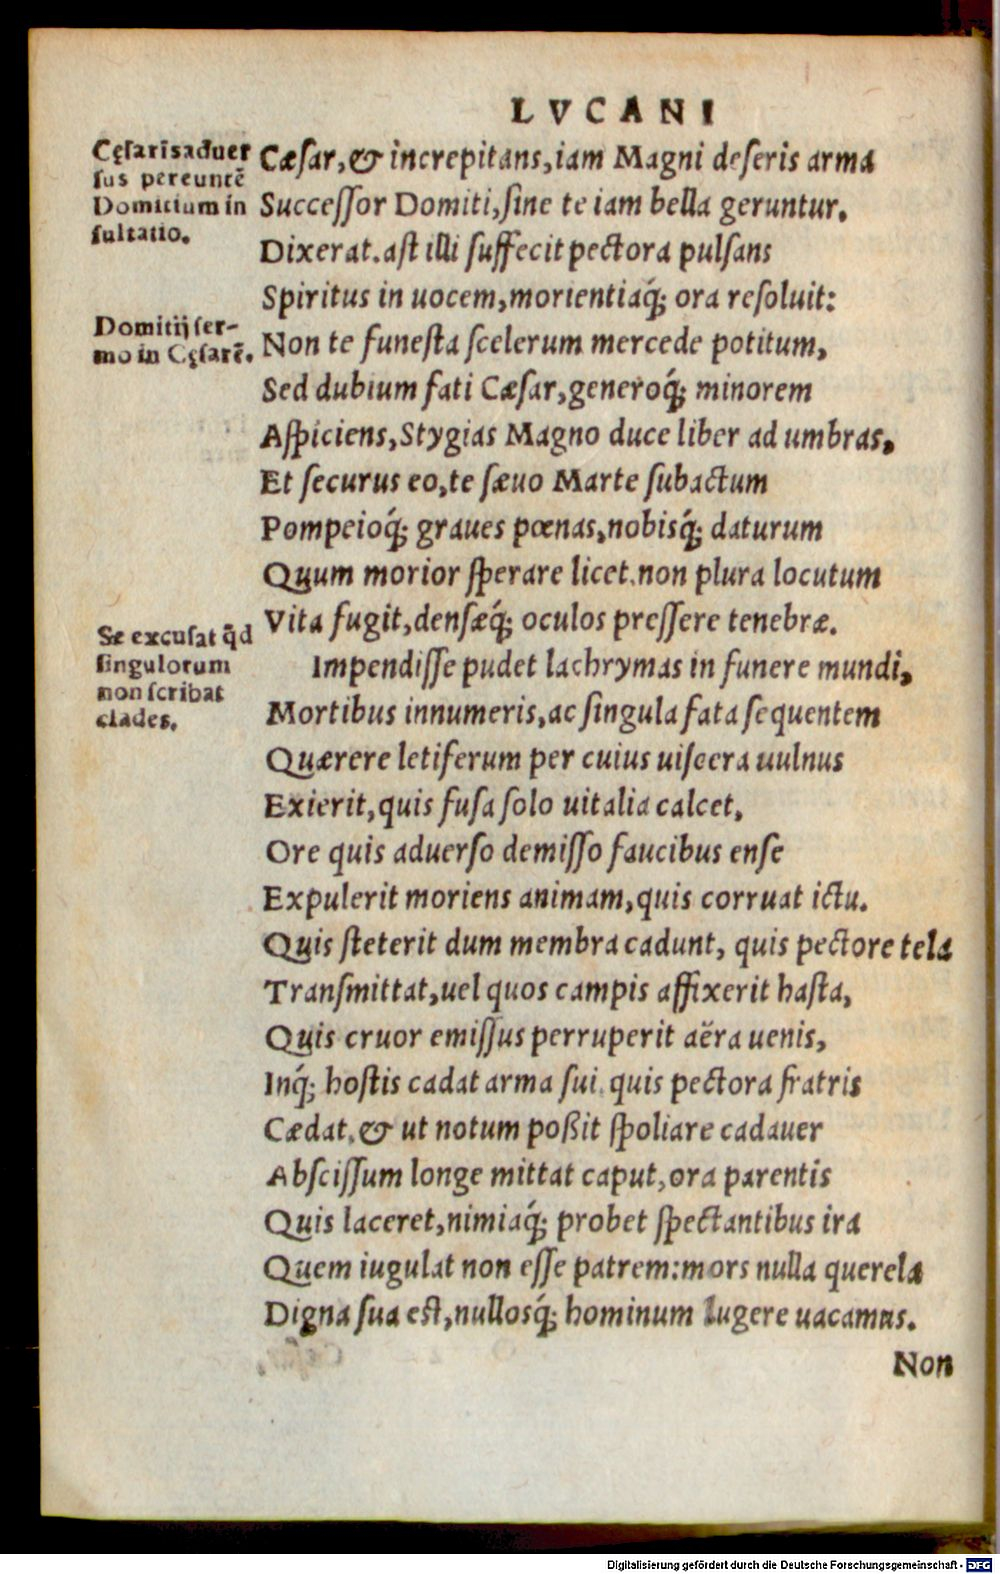 LVCANI
Cęsaris aduer
sus pereuntē
Domitium in
sultatio.
Cæsar, & increpitans, iam Magni deseris arma
Successor Domiti, sine te iam bella geruntur.
Dixerat. ast illi suffecit pectora pulsans
Spiritus in uocem, morientiaq́; ora resoluit:
Domitij ser-
mo in Cęsarē.
Non te funesta scelerum mercede potitum,
Sed dubium fati Cæsar, generoq́; minorem
Aspiciens, Stygias Magno duce liber ad umbras,
Et securus eo, te sæuo Marte subactum
Pompeioq́; graues pœnas, nobisq́; daturum
Quum morior sperare licet. non plura locutum
Vita fugit, densæq́; oculos pressere tenebræ.
Se excusat q̄d
singulorum
non scribat
clades.
Impendisse pudet lachrymas in funere mundi,
Mortibus innumeris, ac singula fata sequentem
Quærere letiferum per cuius uiscera uulnus
Exierit, quis fusa solo uitalia calcet,
Ore quis aduerso demisso faucibus ense
Expulerit moriens animam, quis corruat ictu.
Quis steterit dum membra cadunt, quis pectore tela
Transmittat, uel quos campis affixerit hasta,
Quis cruor emissus perruperit aëra uenis,
Inq́; hostis cadat arma sui. quis pectora fratris
Cædat, & ut notum poßit spoliare cadauer
Abscissum longe mittat caput, ora parentis
Quis laceret, nimiaq́; probet spectantibus ira
Quem iugulat non esse patrem: mors nulla querela
Digna sua est, nullosq́; hominum lugere uacamus.
Non
Digitalisierung gefördert durch die Deutsche Forschungsgemeinschaft - DFG